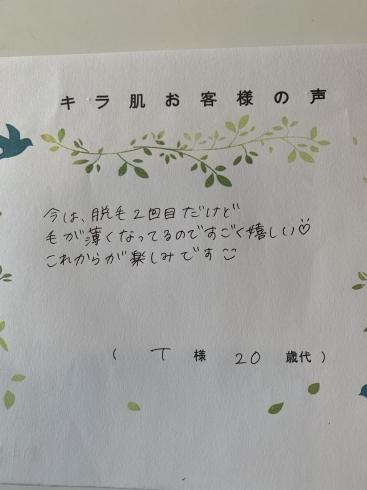 キラ肌お客様の声
今は、脱毛2回目だけど
毛が薄くなってるのですごく嬉しい♡
これからが楽しみです
( T 様 20 歳代 )